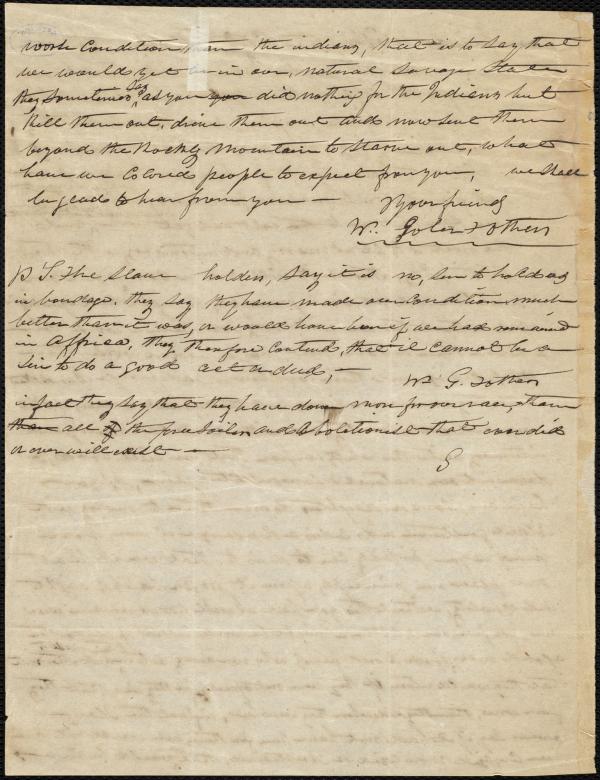 worse Condition than the indians, that is to say that
we would yet be in our, natural Savage State
they Sometimes Say, as you you did nothing for the Indians but
kill them out, drive them out and now sent them
beyond the Rocky Mountain to Starve out, what
have we Colored people to expect from you, we shall
be glad to hear from you —
Your friend
W. &
P S. The Slave holders, Say it is no, sin to hold us
in bondage. they say they have made our Condition much
better than it was, or would have been if we had remained
in Affrica, they therefore Contend, that it cannot be a
Sin to do a good act a deed, —
Wm G.
infact they say that they have done more for our race, than
than all of the free Soilers and Abolitionist that ever did
or ever will exist —
G